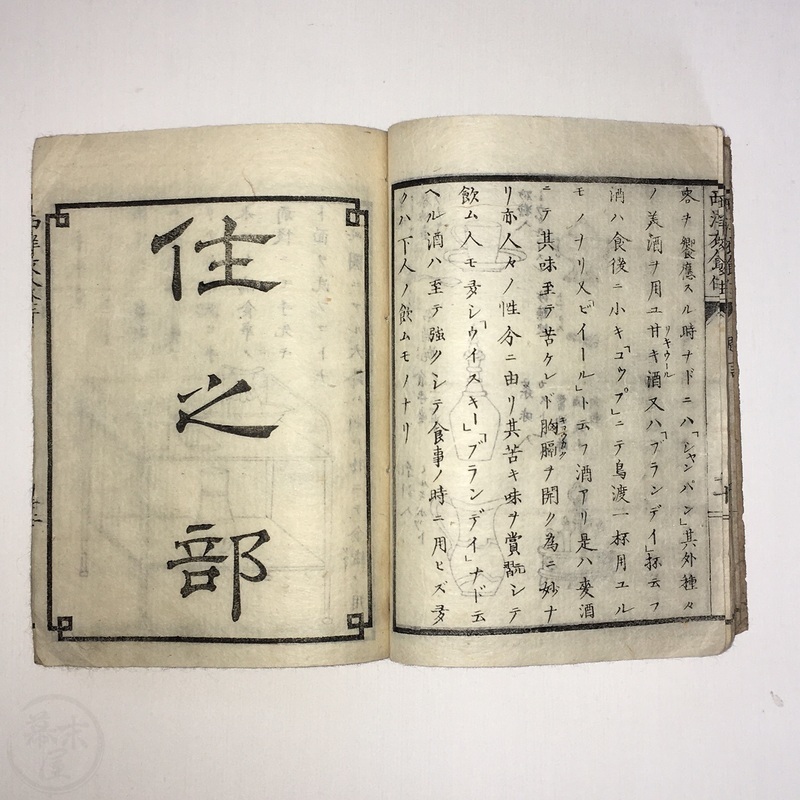 西洋衣食住
客ヲ饗應スル時ナドニハ「シャンパン」其外種々
ノ美酒ヲ用ユ甘キ酒又ハ「ブランデイ」抔云フ
リキウール
酒ハ食後ニ小キ「コップ」ニテ鳥渡一杯用ユル
モノナリ又「ビイール」ト云フ酒アリ是ハ麥酒
ニテ其味至テ苦ケレド胸膈ヲ開ク為ニ妙ナ
キヨウカク
リ亦人々ノ性分ニ由リ其苦キ味ヲ賞翫シテ
飲ム人モ多シ「ウイスキー」「ブランデイ」ナド云
ヘル酒ハ至テ強クシテ食事ノ時ニ用ヒズ多
クハ下人ノ飲ムモノナリ
住之部
幕末屋